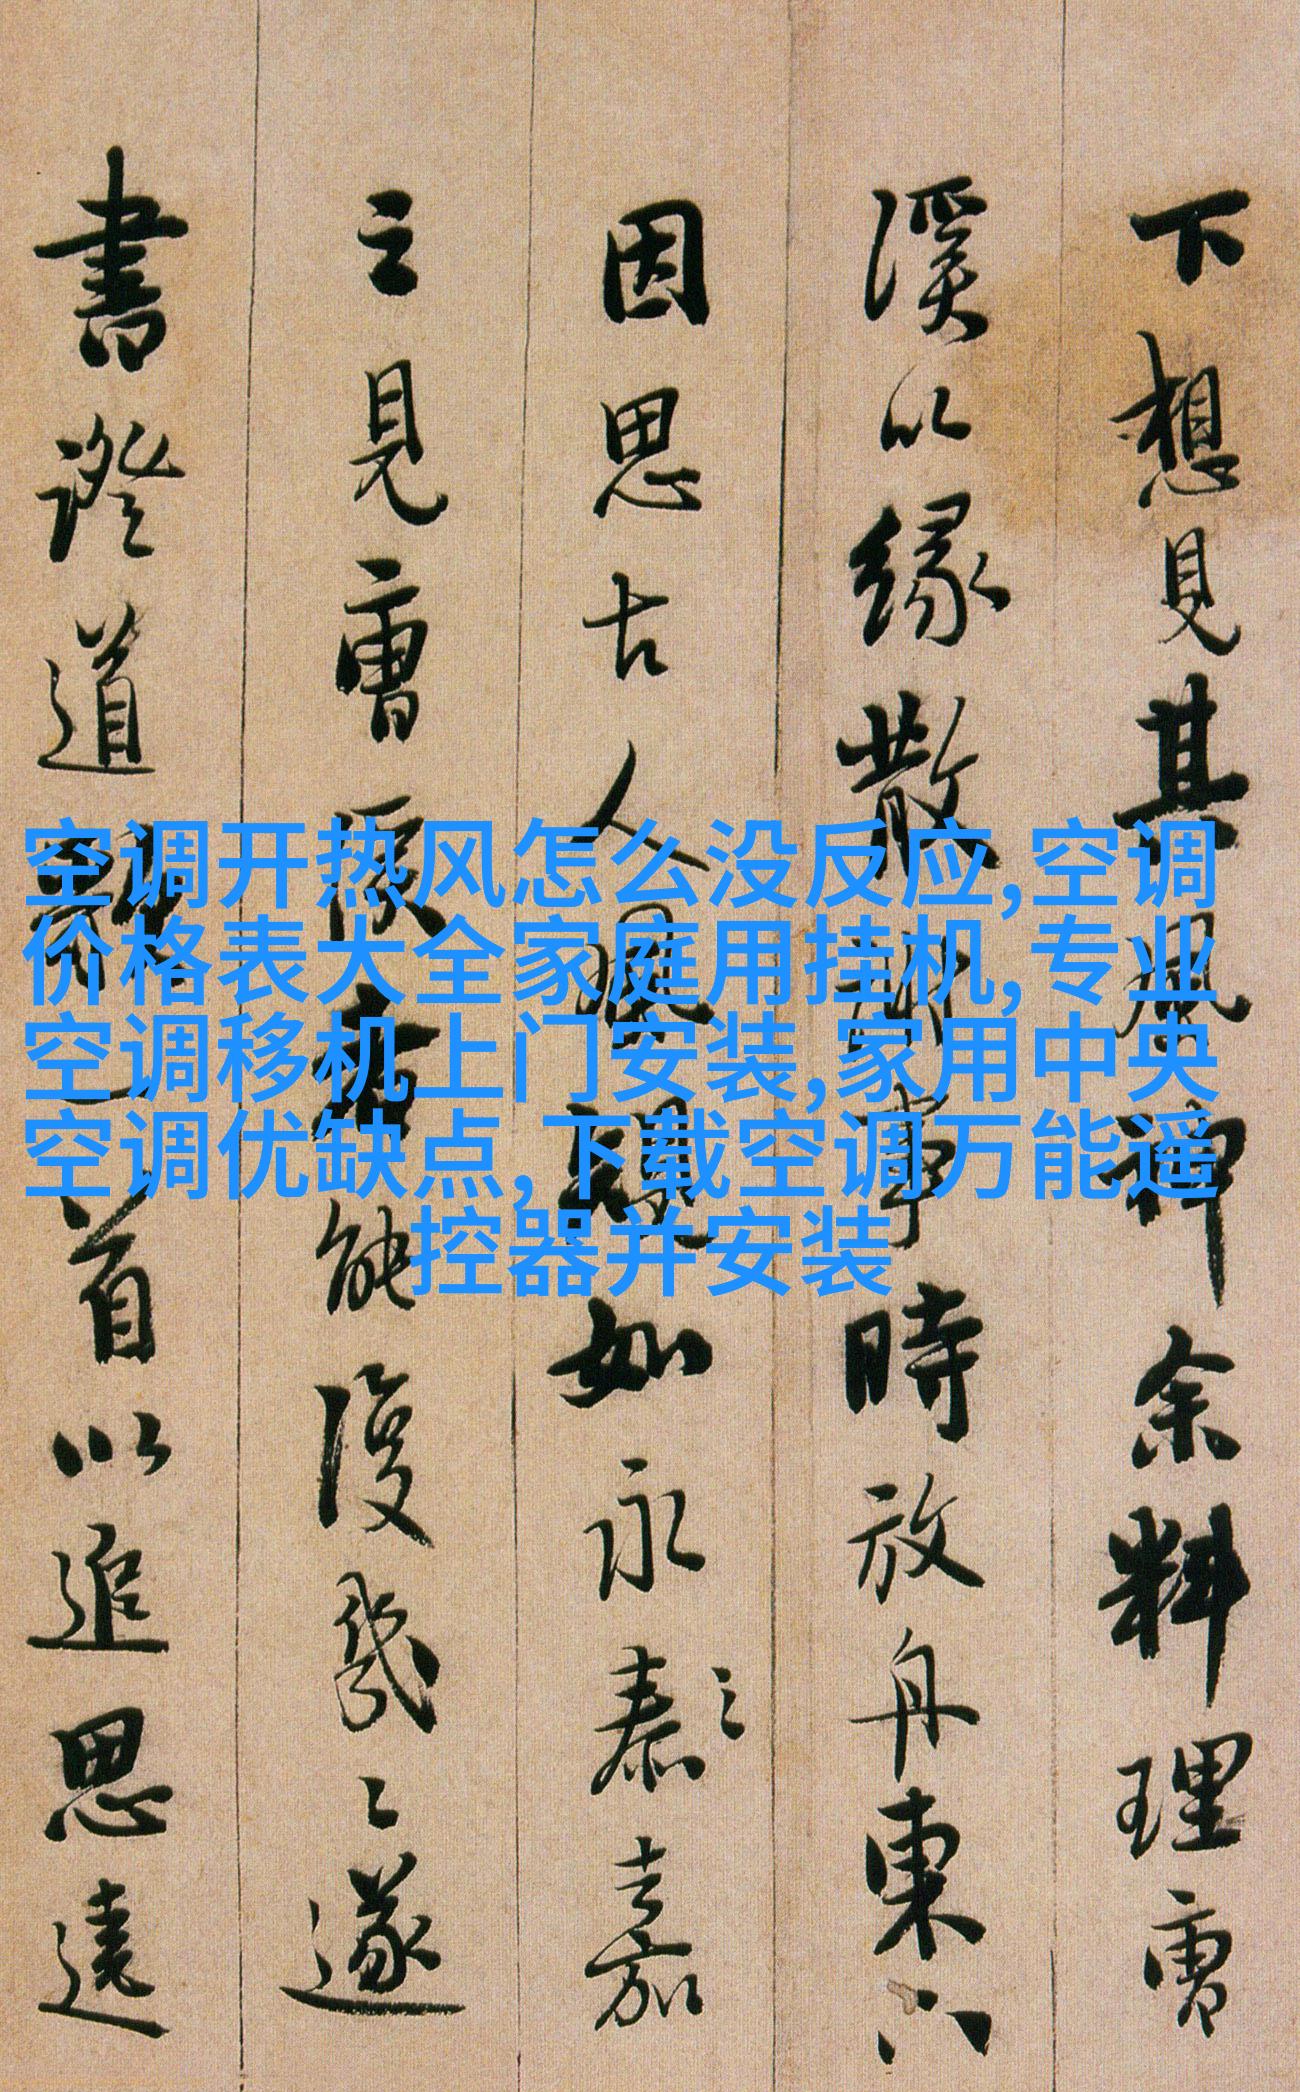 空调开热风怎么没反应,空调
价格表大全家庭用挂机,专业
空调移机上门安装,家用中央
空调优缺点,下载空调万能遥
控器并安装
下想見其風神余料理
溪以緣散事時放舟東
因思古人如永泰之嘉
之見能復幾遂
書證道歌一首以追思遠